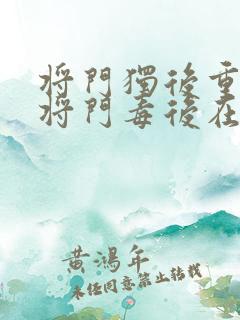 将門獨後重
将門毒後在
黄鴻年
未經同意禁止轉載